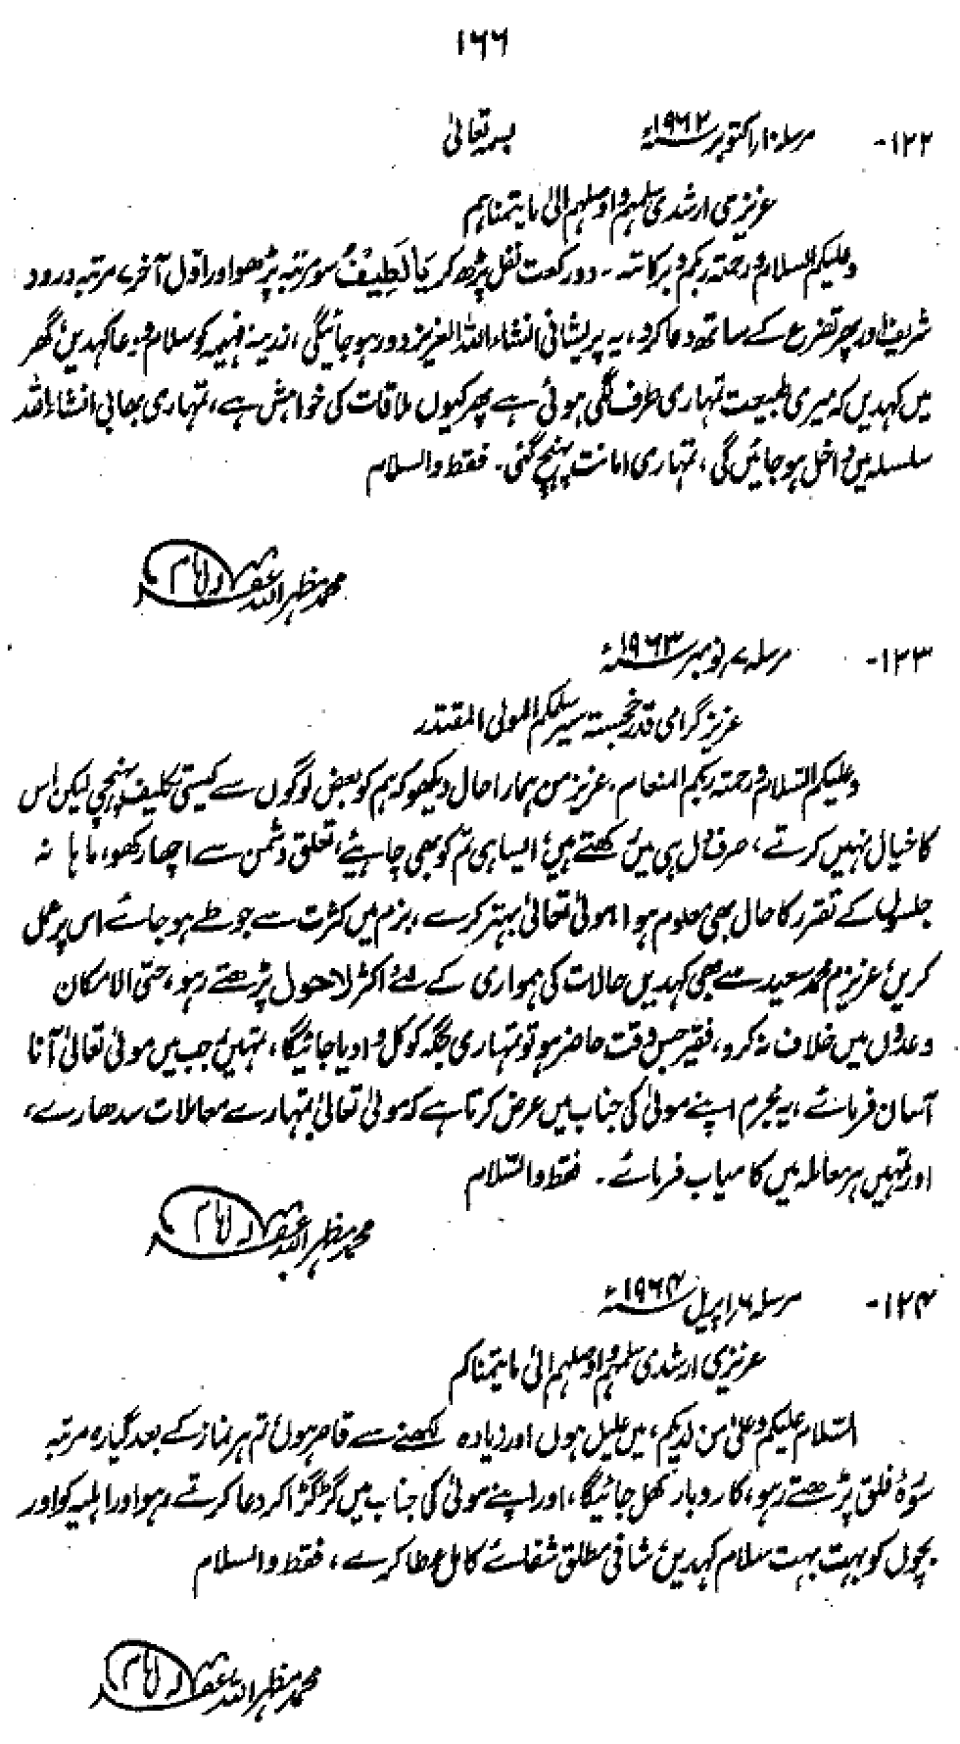 ۱۶۶
۱۲۲- مرسلہ ۱۰ر اکتوبر ۱۹۶۲ء بسمہ تعالیٰ
عزیزی ارشدی سلمہم و اوصلہم الیٰ ما یتمناہم
وعلیکم السلام و رحمتہ ربکم و برکاتہ - دو رکعت نفل پڑھ کر یَا لَطِیْفُ سو مرتبہ پڑھو اور اوّل آخر ۷ مرتبہ درود
شریف اور پھر تضرع کے ساتھ دعا کرو، یہ پریشانی انشاء اللہ العزیز دور ہو جائیگی، فہیمہ کو سلام و دعا کہدیں گھر
میں کہدیں کہ میری طبیعت تمہاری طرف لگی ہوئی ہے پھر کیوں ملاقات کی خواہش ہے، تمہاری بھابی انشاء اللہ
سلسلہ میں داخل ہو جائیں گی، تمہاری امانت پہنچ گئی۔ فقط والسلام
محمد مظہر اللہ غفرلہ امام
۱۲۳- مرسلہ ۷ر نومبر ۱۹۶۳ء
عزیز گرامی قدر خجستہ سیر سلمکم المولی المقتدر
وعلیکم السلام و رحمتہ ربکم المنعام۔ عزیز من ہمارا حال دیکھو کہ ہم کو بعض لوگوں سے کیسی تکلیف پہنچی لیکن اس
کا خیال نہیں کرتے، صرف دل ہی میں رکھتے ہیں ایسا ہی تم کو بھی چاہیئے، تعلق دشمن سے اچھا رکھو، ماہانہ
جلسوں کے تقرر کا حال بھی معلوم ہوا مولیٰ تعالیٰ بہتر کرے، بزم میں کثرت سے جو طے ہو جائے اس پر عمل
کریں عزیزم محمد سعید سے بھی کہدیں حالات کی ہمواری کے لئے اکثر لاحول پڑھتے رہو، حتّی الامکان
وعدوں میں خلاف نہ کرو، فقیر جس وقت حاضر ہو تو تمہاری جگہ کو کل دیا جائیگا، تمہیں جب میں مولیٰ تعالیٰ آنا
آسان فرمائے، یہ مجرم اپنے مولیٰ کی جناب میں عرض کرتا ہے کہ مولیٰ تعالیٰ تمہارے معاملات سدھارے،
اور تمہیں ہر معاملہ میں کامیاب فرمائے۔ فقط والسّلام
محمد مظہر اللہ غفرلہ امام
۱۲۴- مرسلہ ۶ر اپریل ۱۹۶۴ء
عزیزی ارشدی سلمہم و اوصلہم الیٰ ما یتمناکم
السلام علیکم و علیٰ من لدیکم، میں علیل ہوں اور زیادہ لکھنے سے قاصر ہوں تم ہر نماز کے بعد گیارہ مرتبہ
سورۂ فلق پڑھتے رہو، کاروبار کھل جائیگا، اور اپنے مولیٰ کی جناب میں گڑگڑا کر دعا کرتے رہو اور اہلیہ کو اور
بچوں کو بہت بہت سلام کہدیں شافی مطلق شفائے کامل عطا کرے، فقط والسلام
محمد مظہر اللہ غفرلہ امام